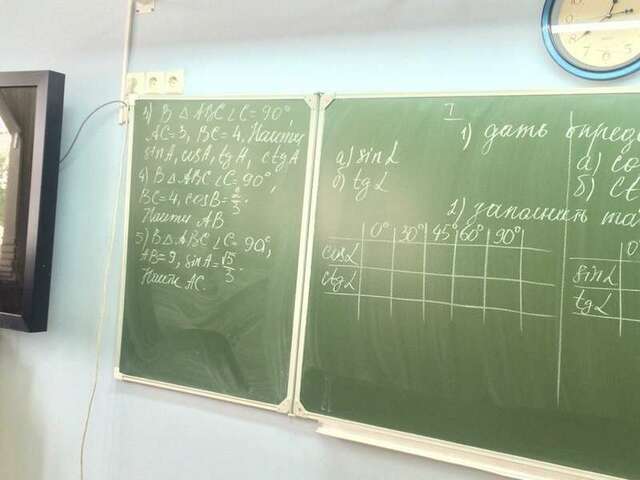 3) В △ ABC ∠C = 90°,
AC=3, BC=4. Найти
sinA, cosA, tgA, ctgA
4) В △ ABC ∠C=90°,
BC=4, cosB=
Найти AB
5) В △ ABC ∠C=90°,
AB=9, sinA=√5/3.
Найти AC.
I
1) дать опреде
а) sin α
б) tg α
а) co
б) ct
2) заполнить та
0° 30° 45° 60° 90°
cos α
ctg α
0
sin α
tg α